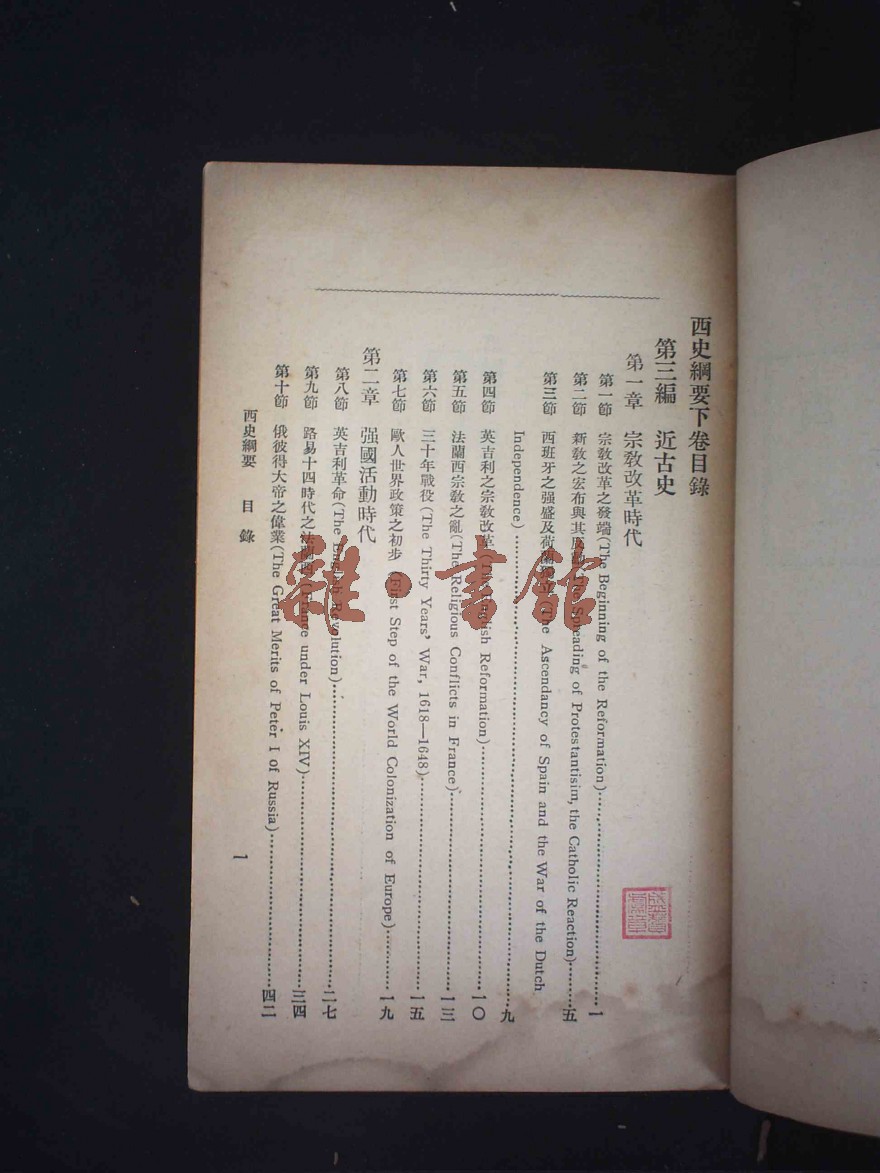 西史綱要下卷目錄
第三編 近古史
第一章 宗敎改革時代
第一節 宗敎改革之發端(The Beginning of the Reformation)………一
第二節 新敎之宏布與其 (The Spreading of Protestantisim, the Catholic Reaction)………五
第三節 西班牙之强盛及荷蘭 (The Ascendancy of Spain and the War of the Dutch
Independence)………九
第四節 英吉利之宗敎改革(The English Reformation)………一〇
第五節 法蘭西宗敎之亂(The Religious Conflicts in France)………一三
第六節 三十年戰役(The Thirty Years' War, 1618—1648)………一五
第七節 歐人世界政策之初步(First Step of the World Colonization of Europe)………一九
第二章 强國活動時代
第八節 英吉利革命(The English Revolution)………二七
第九節 路易十四時代之法蘭西(France under Louis XIV)………三四
第十節 俄彼得大帝之偉業(The Great Merits of Peter I of Russia)………四二
西史綱要 目錄
一
雜·書館